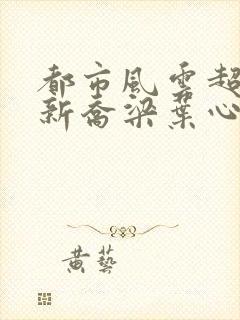 都市風雲超
新喬梁葉心
黄藝